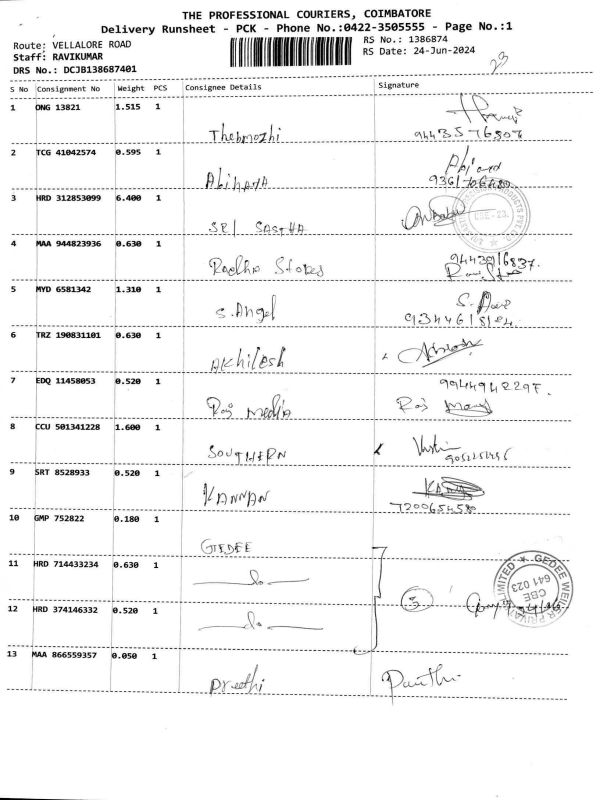 THE PROFESSIONAL COURIERS, COIMBATORE
Delivery Runsheet - PCK - Phone No.:0422-3505555 - Page No.:1
Route: VELLALORE ROAD
RS No.: 1386874
Staff: RAVIKUMAR
RS Date: 24-Jun-2024
DRS No.: DCJB138687401
23
S No Consignment No Weight PCS Consignee Details Signature
1 ONG 13821 1.515 1
Thenmozhi
2 TCG 41042574 0.595 1
Abinaya
3 HRD 312853099 6.400 1
SRI SASTHA
CBE - 23.
4 MAA 944823936 0.630 1
Radha Stores
5 MYD 6581342 1.310 1
S. Angel
6 TRZ 190831101 0.630 1
Akhilesh
7 EDQ 11458053 0.520 1
Raj Media
Raj
8 CCU 501341228 1.600 1
SOUTHERN
9 SRT 8528933 0.520 1
KANNAN
7200654580
10 GMP 752822 0.180 1
GEDEE
11 HRD 714433234 0.630 1
— do —
12 HRD 374146332 0.520 1
— do —
3
GEDEE WEILER PRIVATE LIMITED
CBE
641 023
13 MAA 866559357 0.050 1
Preethi